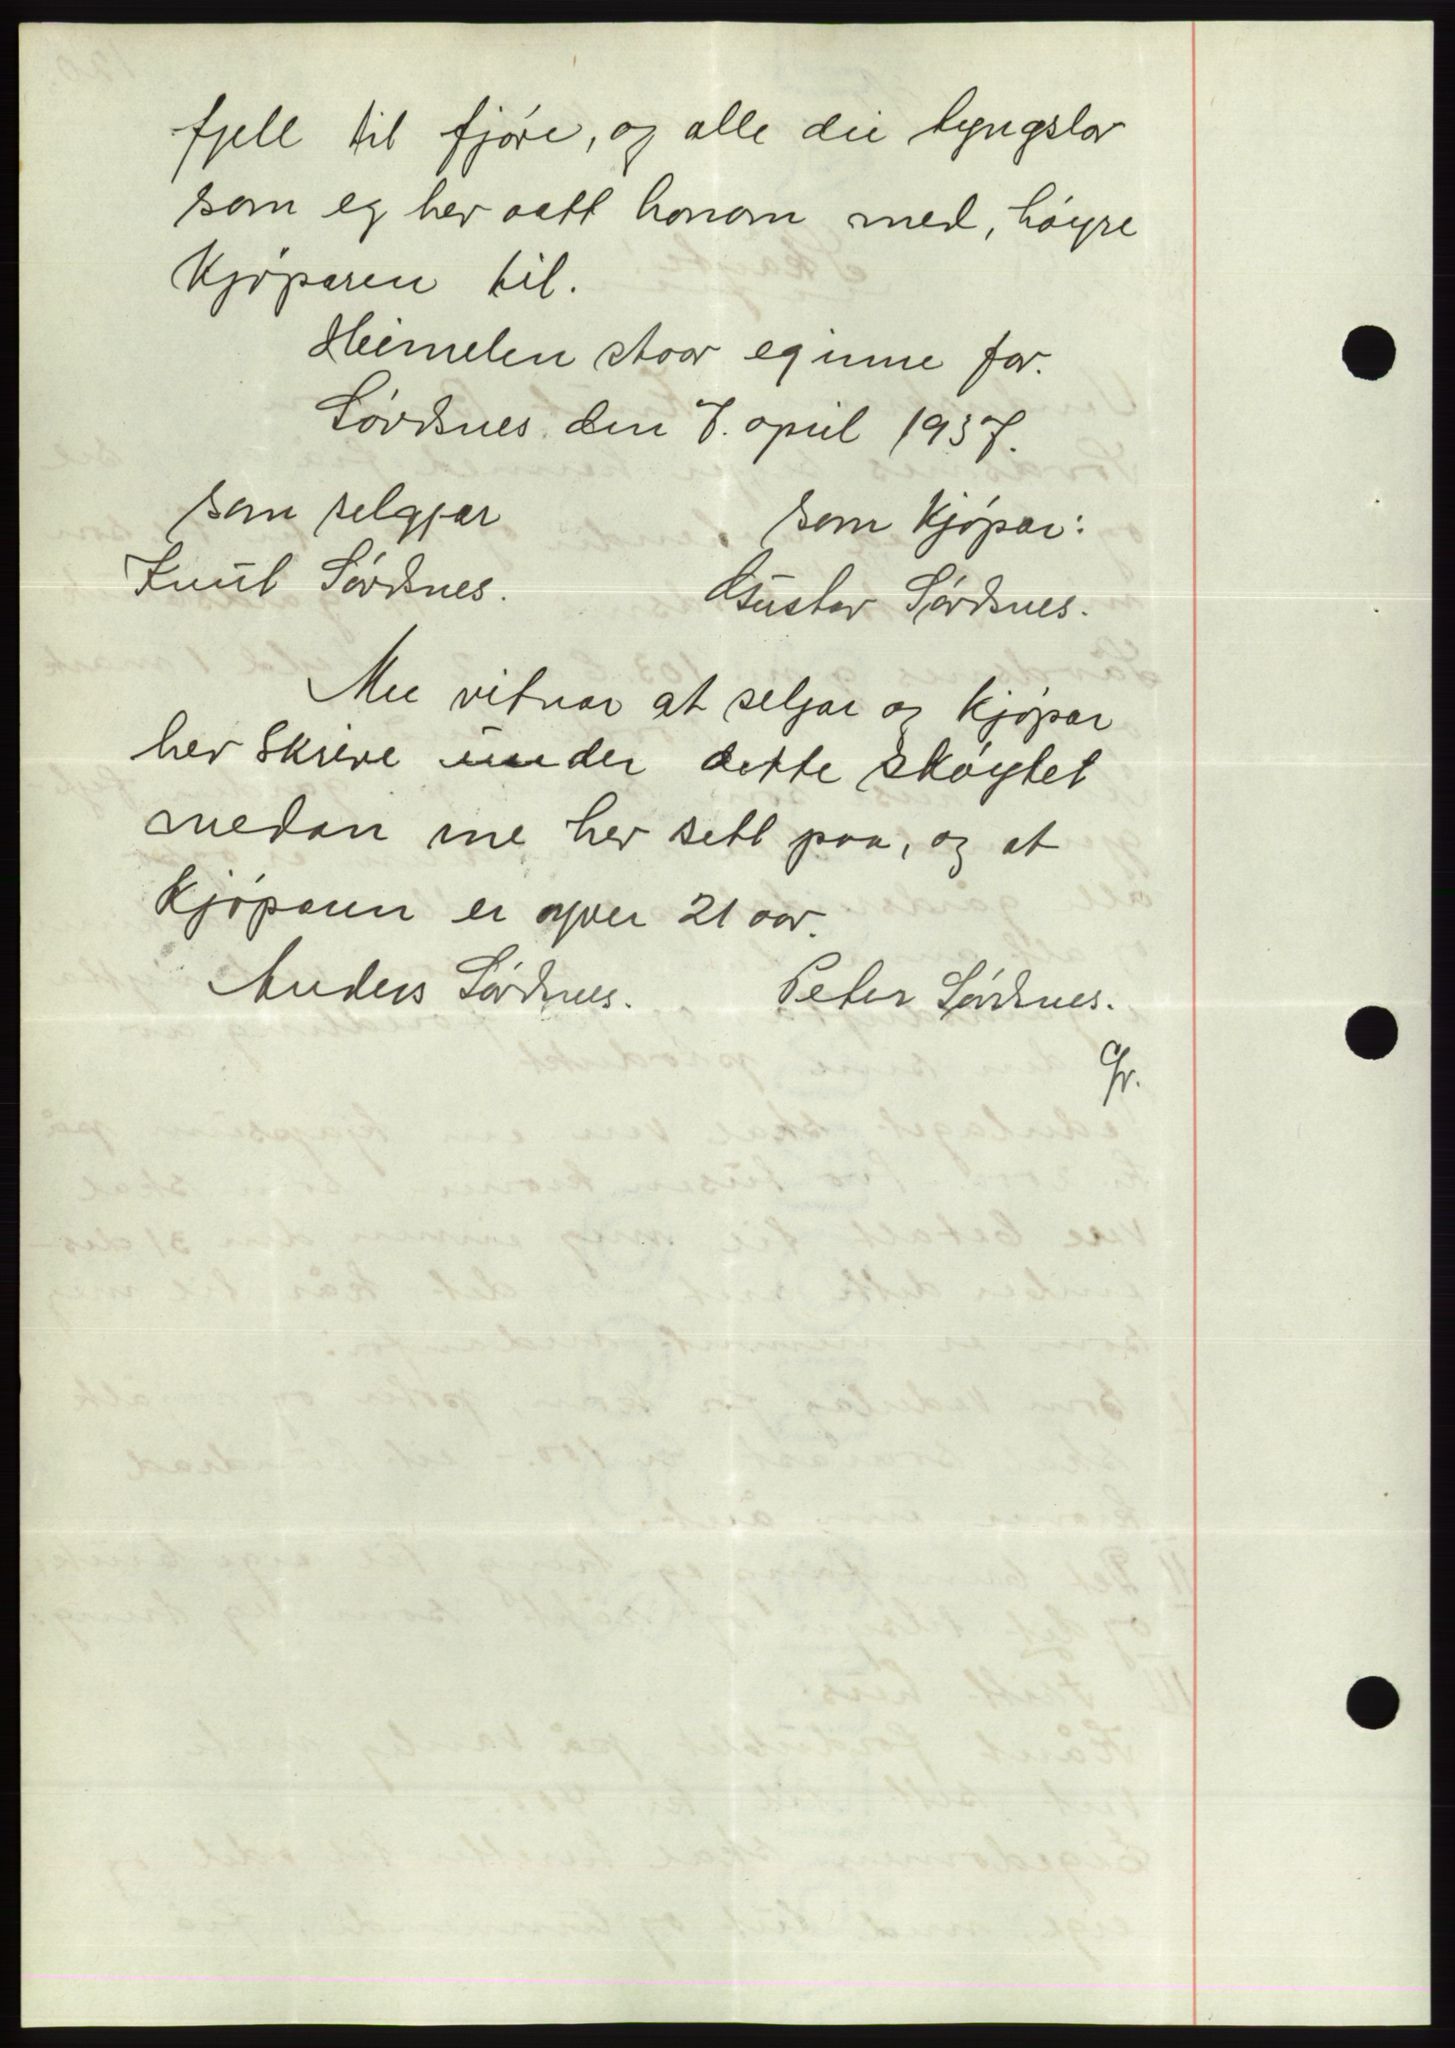 fjell til fjöre, og alle dei tyngslor
som eg hev aatt honom med, höyre
Kjöparen til.
Heimelen stoar eg inne for.
Sördsnes den 7. april 1937.
som selgjar som Kjöpar:
Knut Sördsnes. Gustav Sördsnes.
Me vitnar at seljar og Kjöpar
hev skrive under dette sköytet
medan me hev sett paa, og at
Kjöparen er yver 21 aar.
Anders Sördsnes. Peter Sördsnes.